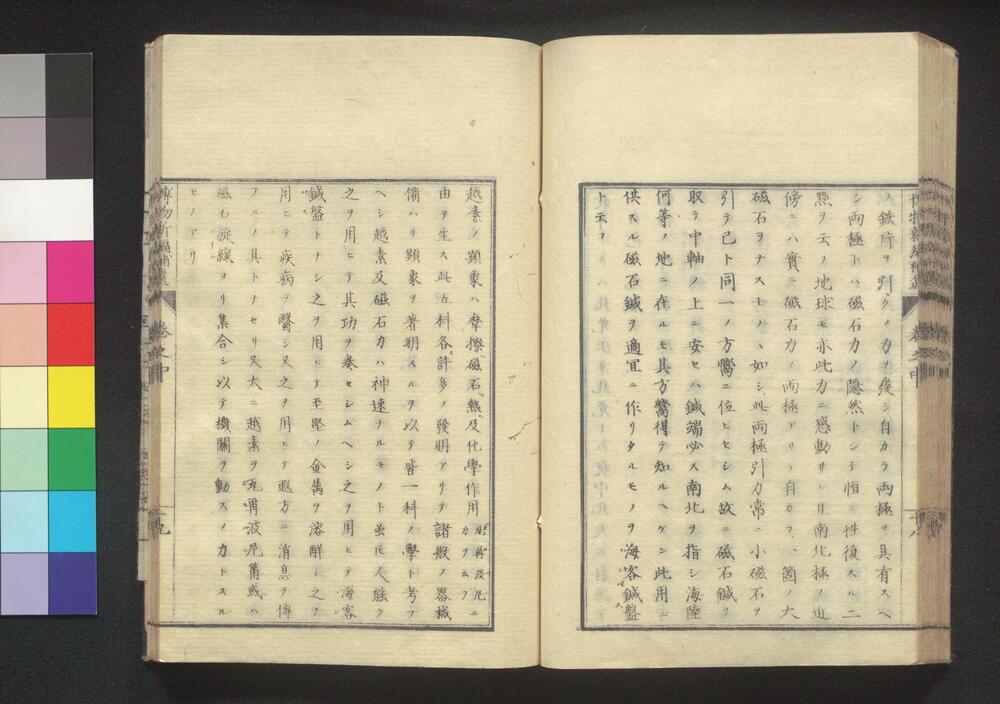 ノ鉄片ヲ引クノ力ヲ発シ自カラ両極ヲ具有スヘ
シ両極トハ磁石力ノ隠然トシテ恒ニ往復スル二
點ヲ云フ地球モ亦此力ニ感動サレ且南北極ノ近
傍ニハ實ニ磁石力ノ両極アリテ自カラ一箇ノ大
磁石ヲナスモノヽ如シ此両極引力常ニ小磁石ヲ
引テ己ト同一ノ方嚮ニ位セシム故ニ磁石鍼ヲ
取テ中軸ノ上ニ安セハ鍼端必ス南北ヲ指シ海陸
何等ノ地ニ在ルモ其方嚮得テ知ルヘケン此用ニ
供スル磁石鍼ヲ適宜ニ作リタルモノヲ海客鍼盤
ト云フ
巻之中
十八
越素ノ顕象ハ摩擦磁石熱及化學作用
由テ生ス此五科各許多ノ發明アリテ諸般ノ器械
備ハリ顕象ヲ著明スルヲ以テ皆一科ノ學ト考フ
ヘシ越素及磁石力ハ神速ナルモノト虽𪜈人能ク
之ヲ用ヒテ其功ヲ奏セシムヘシ之ヲ用ヒテ海客
鍼盤トナシ之ヲ用ヒテ至堅ノ金属ヲ溶解シ之ヲ
用ヒテ疾病ヲ醫シ又之ヲ用ヒテ遐方ニ消息ヲ傳
フルノ具トナセリ又大ニ越素ヲ瓦爾波尼篤或ハ
磁石旋線ヨリ集合シ以テ機關ヲ動スノ力トスル
モノアリ
博物新編補遺
巻之中
十九